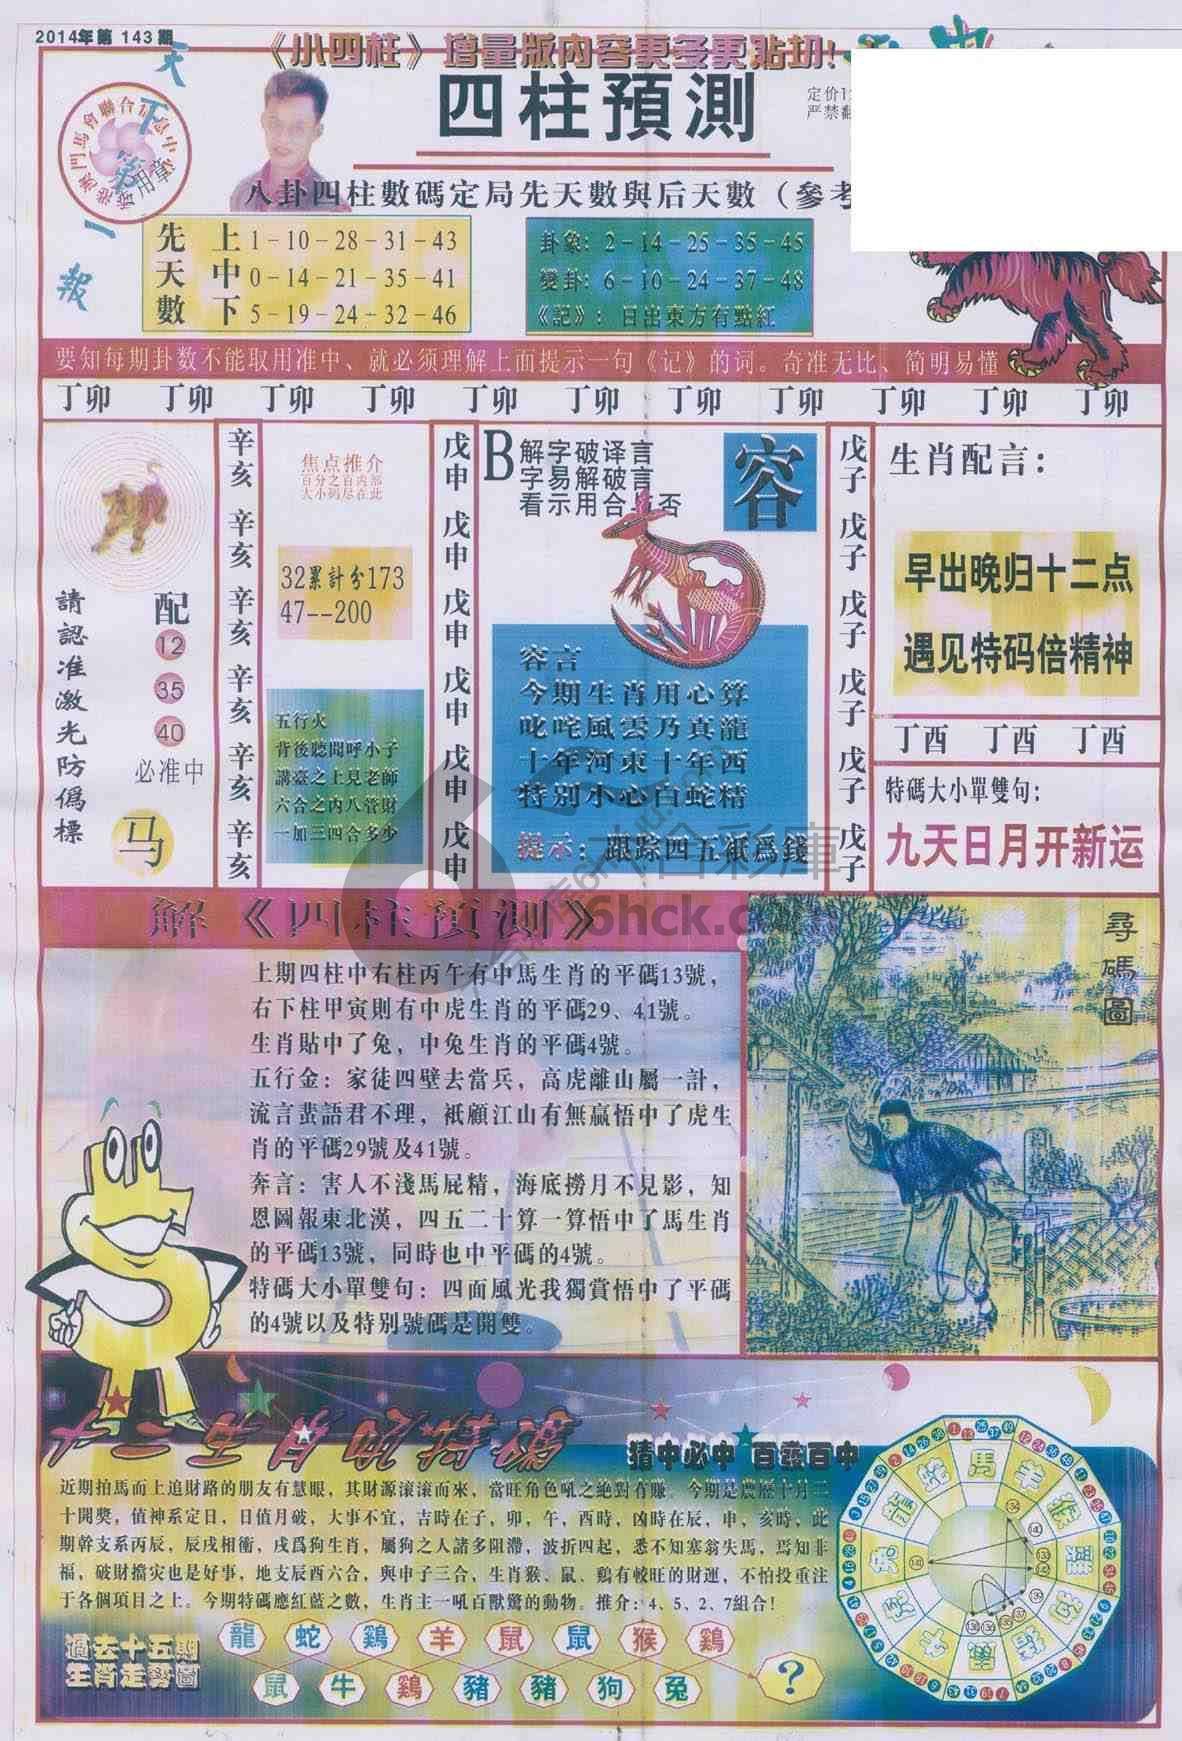 2014年第 143 期
《小四柱》增量版内容更多更贴切!
天下第一報
四柱預測
定价1
严禁翻
八卦四柱數碼定局先天數與后天數（參考
先天數
上 1－10－28－31－43
中 0－14－21－35－41
下 5－19－24－32－46
卦象: 2－14－25－35－45
變卦: 6－10－24－37－48
《記》: 日出東方有點紅
要知每期卦数不能取用准中、就必须理解上面提示一句《记》的词。奇准无比、简明易懂
丁卯 丁卯 丁卯 丁卯 丁卯 丁卯 丁卯 丁卯 丁卯 丁卯 丁卯
請認准激光防僞標
配
12
35
40
必准中
马
辛亥 辛亥 辛亥 辛亥 辛亥 辛亥
焦点推介
百分之百内部
大小码尽在此
32累計分173
47--200
五行火
背後聽聞呼小子
講臺之上見老師
六合之内八管財
一加三四合多少
戊申 戊申 戊申 戊申 戊申 戊申
B
解字破译言
字易解破言
看示用合与否
容
容言
今期生肖用心算
叱咤風雲乃真龍
十年河東十年西
特别小心白蛇精
提示: 跟踪四五衹爲錢
戊子 戊子 戊子 戊子 戊子 戊子
生肖配言:
早出晚归十二点
遇见特码倍精神
丁酉 丁酉 丁酉
特碼大小單雙句:
九天日月开新运
解《四柱預測》
上期四柱中右柱丙午有中馬生肖的平碼13號，
右下柱甲寅則有中虎生肖的平碼29、41號。
生肖貼中了兔，中兔生肖的平碼4號。
五行金: 家徒四壁去當兵，高虎離山屬一計，
流言蜚語君不理，衹顧江山有無贏悟中了虎生
肖的平碼29號及41號。
奔言: 害人不淺馬屁精，海底撈月不見影，知
恩圖報東北漢，四五二十算一算悟中了馬生肖
的平碼13號，同時也中平碼的4號。
特碼大小單雙句: 四面風光我獨賞悟中了平碼
的4號以及特别號碼是開雙。
尋碼圖
猜中必中 百發百中
近期拍馬而上追財路的朋友有慧眼，其財源滚滚而來，當旺角色吼之絶對有賺。今期是農歷十月二
十開獎，值神系定日，日值月破，大事不宜，吉時在子，卯，午，酉時，凶時在辰，申，亥時，此
期幹支系丙辰，辰戌相衝，戌爲狗生肖，屬狗之人諸多阻滯，波折四起，悉不知塞翁失馬，焉知非
福，破財擋灾也是好事，地支辰酉六合，與申子三合，生肖猴、鼠、鷄有較旺的財運，不怕投重注
于各個項目之上。今期特碼應紅藍之數，生肖主一吼百獸驚的動物。推介: 4、5、2、7組合!
過去十五期
生肖走勢圖
龍 蛇 鷄 羊 鼠 鼠 猴 鷄
鼠 牛 鷄 豬 豬 狗 兔
?
6hck.com